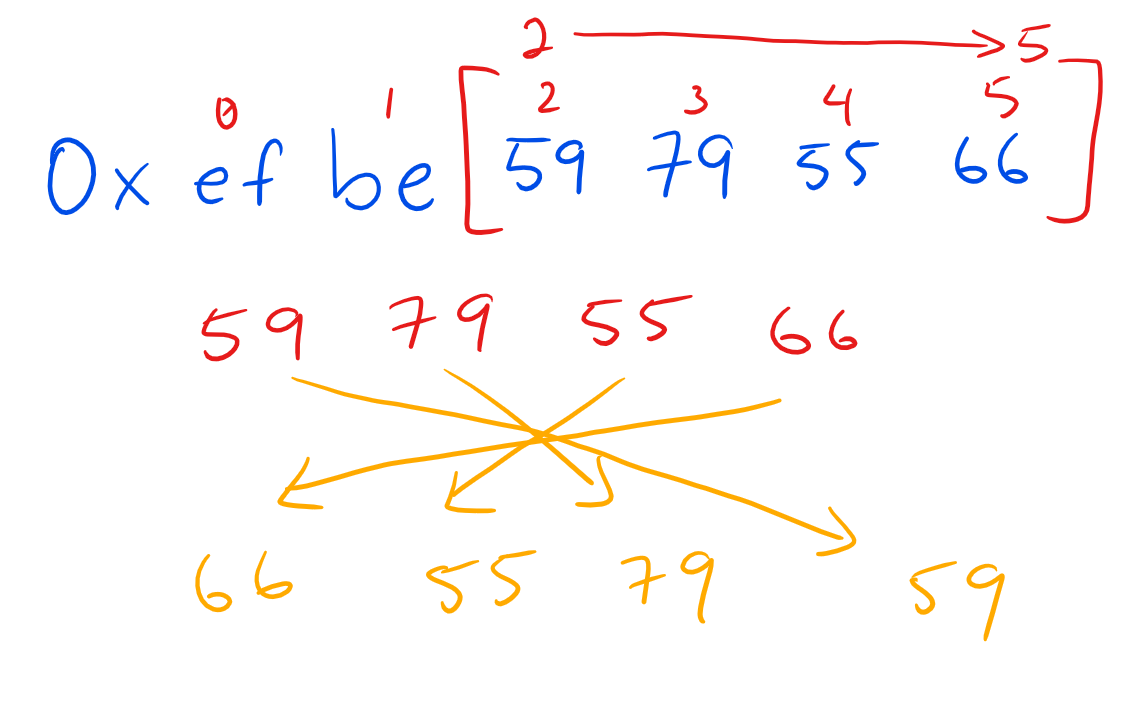 2 5
0 1 2 3 4 5
0x ef be [ 59 79 55 66 ]
59 79 55 66
66 55 79 59